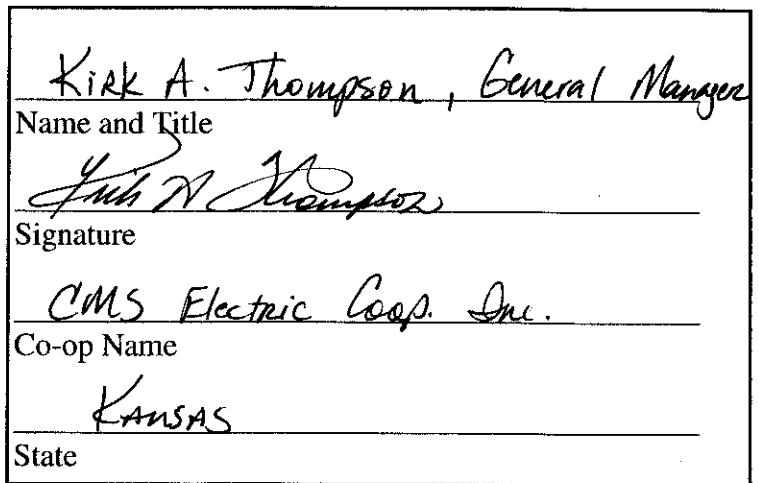 Kirk A. Thompson, General Manager
Name and Title
Kirk A Thompson
Signature
CMS Electric Coop. Inc.
Co-op Name
Kansas
State